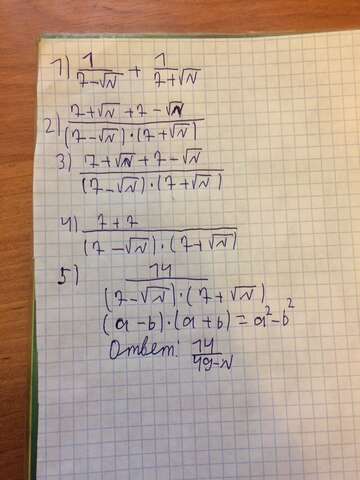 1) 1/(7-√N) + 1/(7+√N)
2) (7+√N+7-√N)/((7-√N)·(7+√N))
3) (7+√N+7-√N)/((7-√N)·(7+√N))
4) (7+7)/((7-√N)·(7+√N))
5) 14/((7-√N)·(7+√N))
(a-b)·(a+b)=a²-b²
Ответ: 14/(49-N)